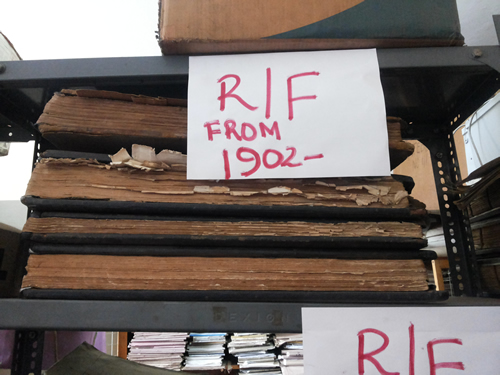 R/F
FROM
1902-
R/F